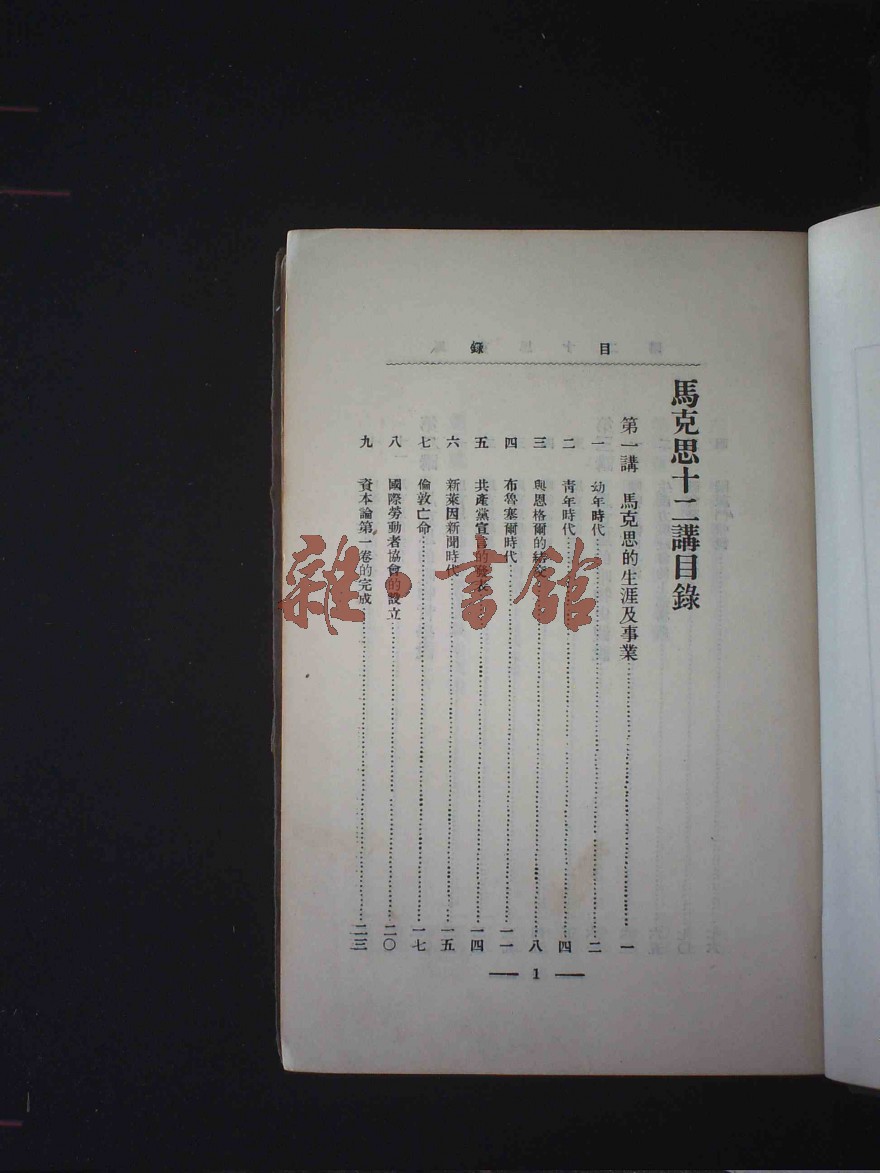 目錄
馬克思十二講目錄
第一講 馬克思的生涯及事業……一
一 幼年時代……二
二 靑年時代……四
三 與恩格爾的締交……八
四 布魯塞爾時代……一一
五 共產黨宣言的發表……一四
六 新萊因新聞時代……一五
七 倫敦亡命……一七
八 國際勞動者協會的設立……二〇
九 資本論第一卷的完成……二三
— 1 —
雜·書館